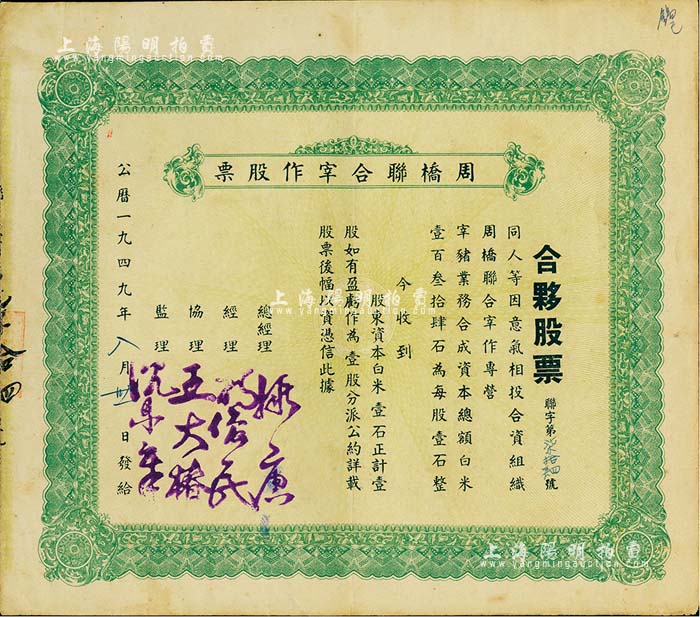 上海陽明拍賣
www.yangmingauction.com
周橋聯合宰作股票
合夥股票
聯字第柒拾四號
同人等因意氣相投合資組織
周橋聯合宰作專營
宰豬業務合成資本總額白米
壹百叁拾肆石為每股壹石整
今收到
股東資本白米壹石正計壹
股如有盈虧作為壹股分派公約詳載
股票後幅以資憑信此據
總經理
經理
協理 王大椿
監理
公曆一九四九年八月廿 日發給
拾四
上海陽明拍賣
www.yangmingauction.com
上海陽明拍賣
www.yangmingauction.com